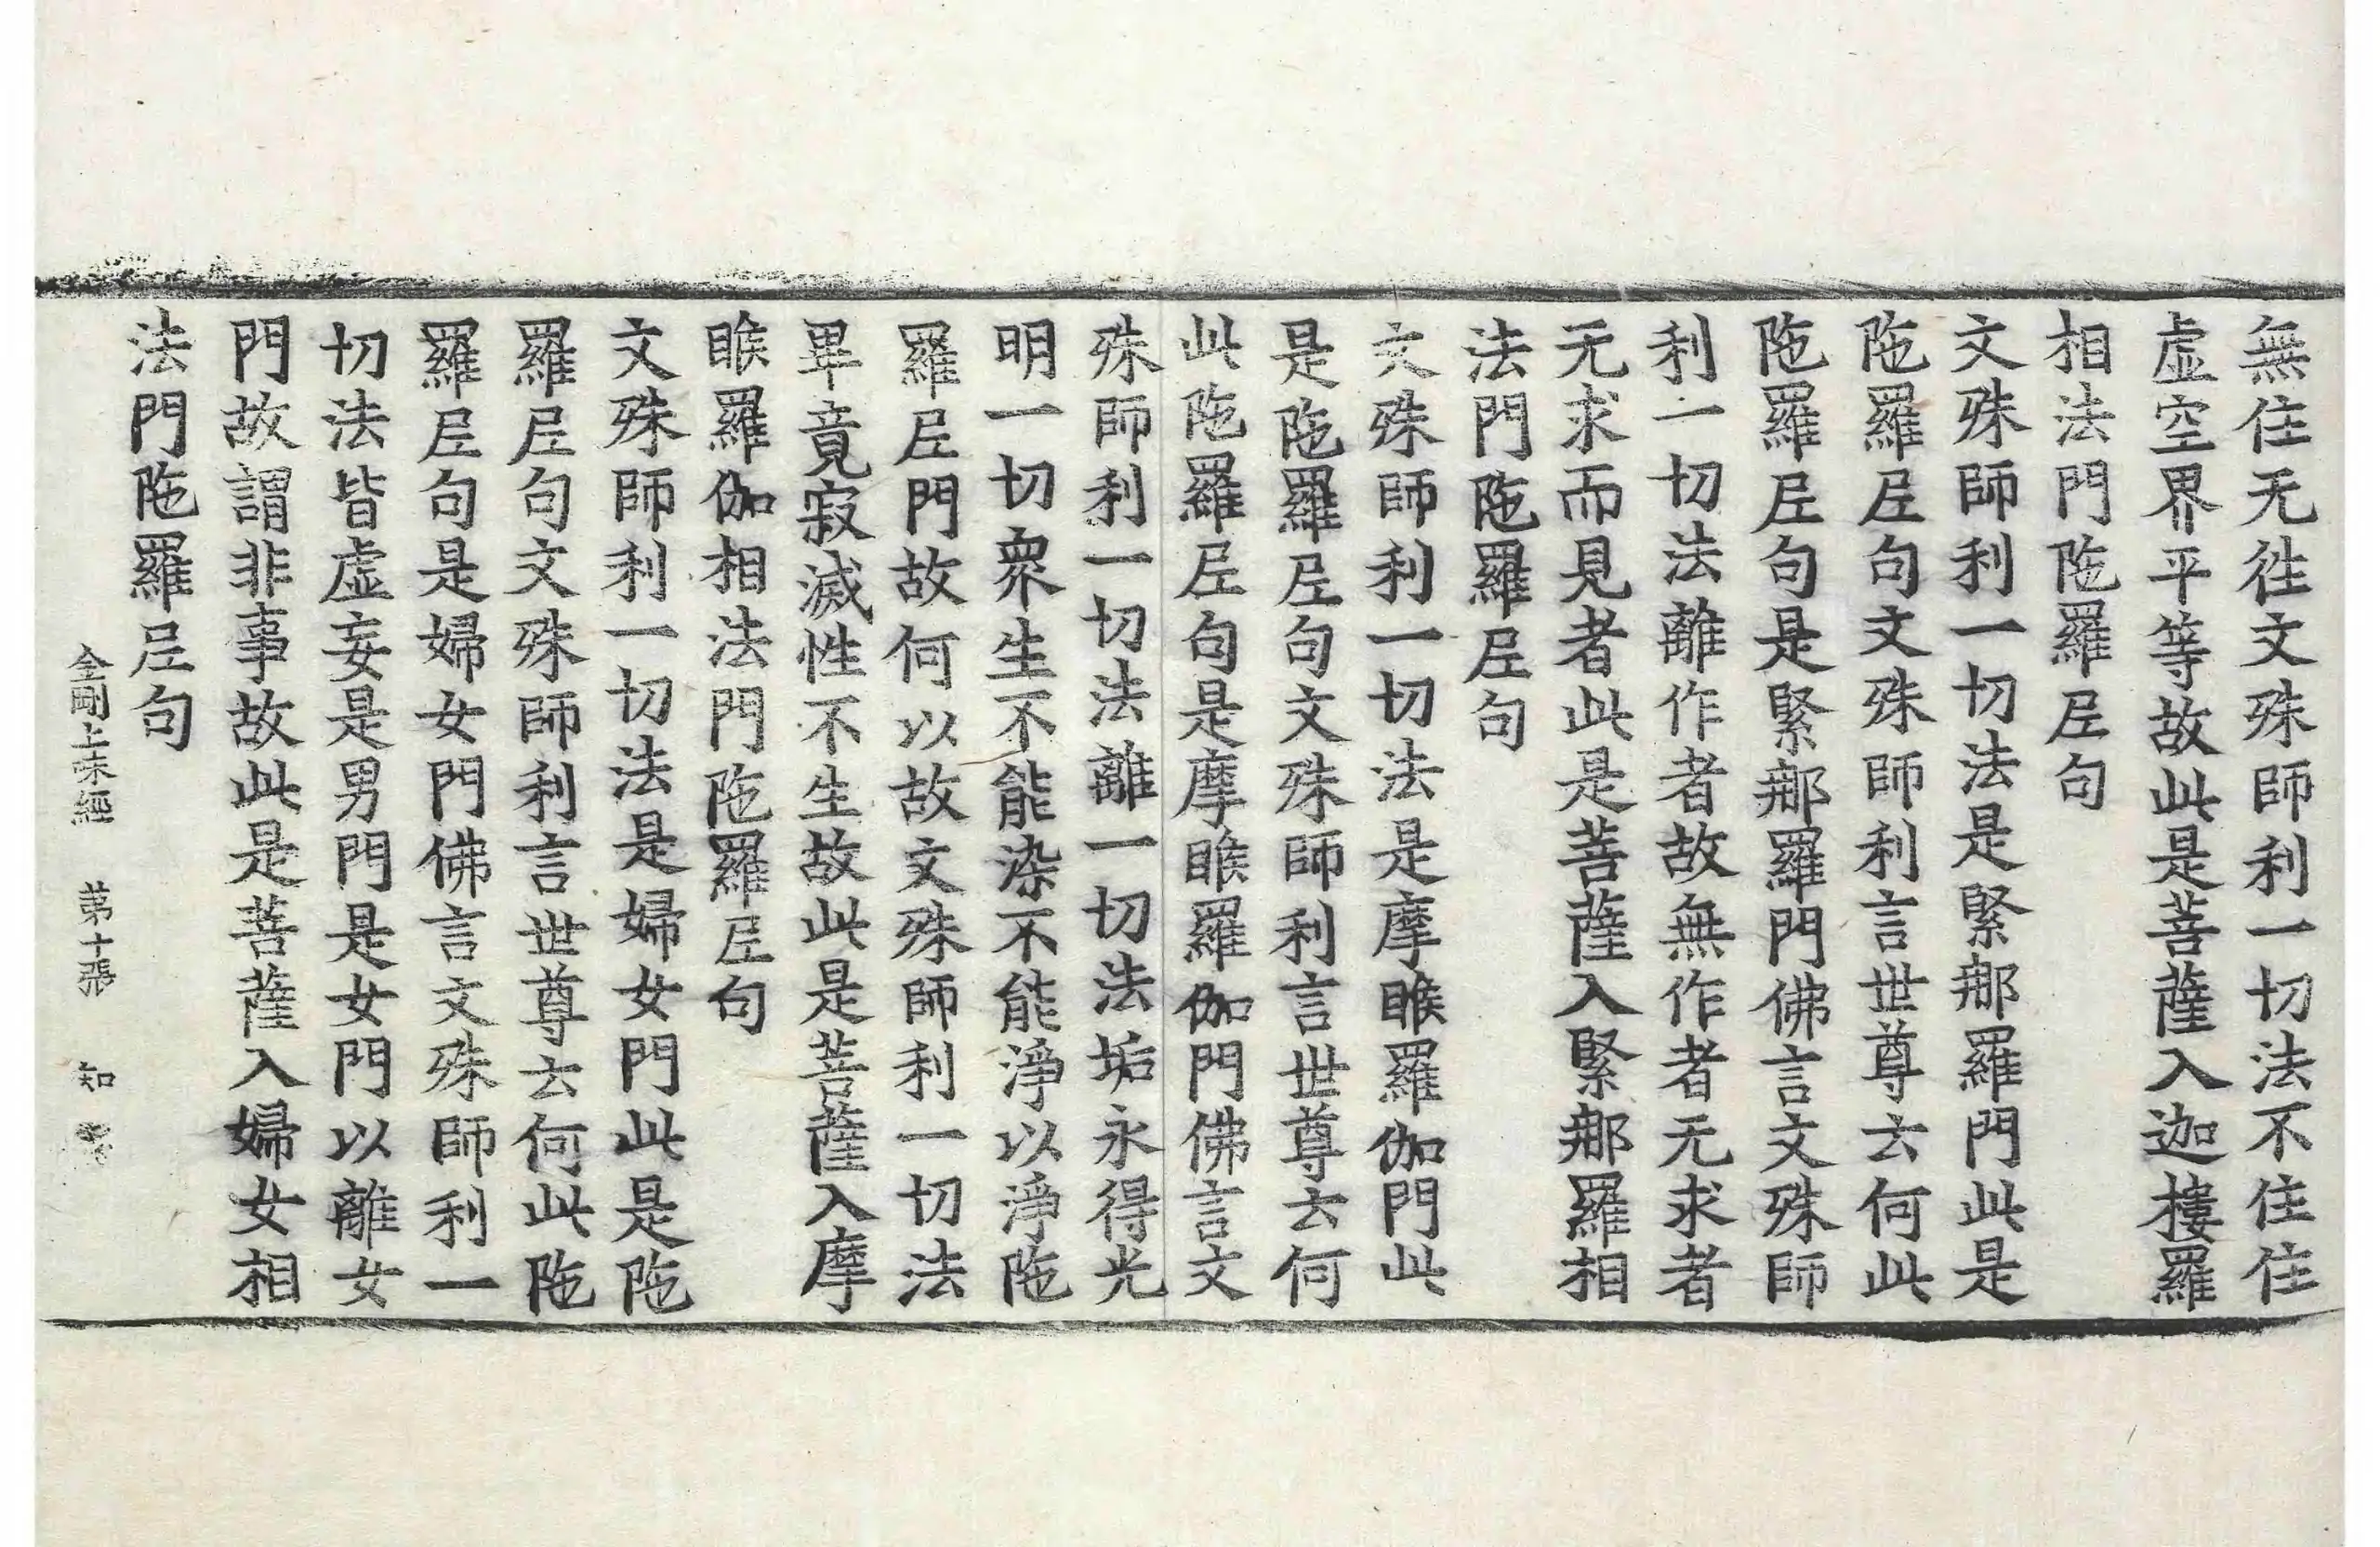 無住无徃文殊師利一切法不住住
虛空界平等故此是菩薩入迦樓羅
相法門陁羅𡰱句
文殊師利一切法是緊那羅門此是
陁羅𡰱句文殊師利言世尊云何此
陁羅𡰱句是緊那羅門佛言文殊師
利一切法離作者故無作者无求者
无求而見者此是菩薩入緊那羅相
法門陁羅𡰱句
文殊師利一切法是摩睺羅伽門此
是陁羅𡰱句文殊師利言世尊云何
此陁羅𡰱句是摩睺羅伽門佛言文
殊師利一切法離一切法垢永得光
明一切衆生不能染不能淨以淨陁
羅𡰱門故何以故文殊師利一切法
畢竟寂滅性不生故此是菩薩入摩
睺羅伽相法門陁羅𡰱句
文殊師利一切法是婦女門此是陁
羅𡰱句文殊師利言世尊云何此陁
羅𡰱句是婦女門佛言文殊師利一
切法皆虛妄是男門是女門以離女
門故謂非事故此是菩薩入婦女相
法門陁羅𡰱句
金剛上味經 第十張 知